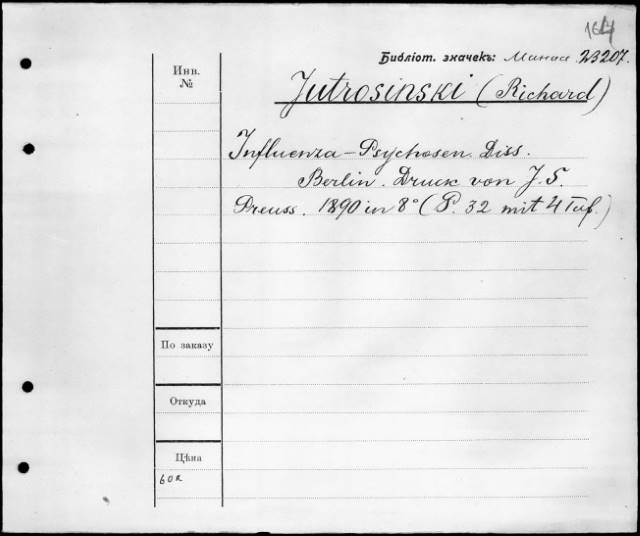 Библіот. значекъ: 23207.
Инв.
№
Jutrosinski (Richard)
Influenza-Psychosen. Diss.
Berlin. Druck von J. S.
Preuss. 1890 in 8° (P. 32 mit 4 Taf.)
По заказу
Откуда
Цѣна
60